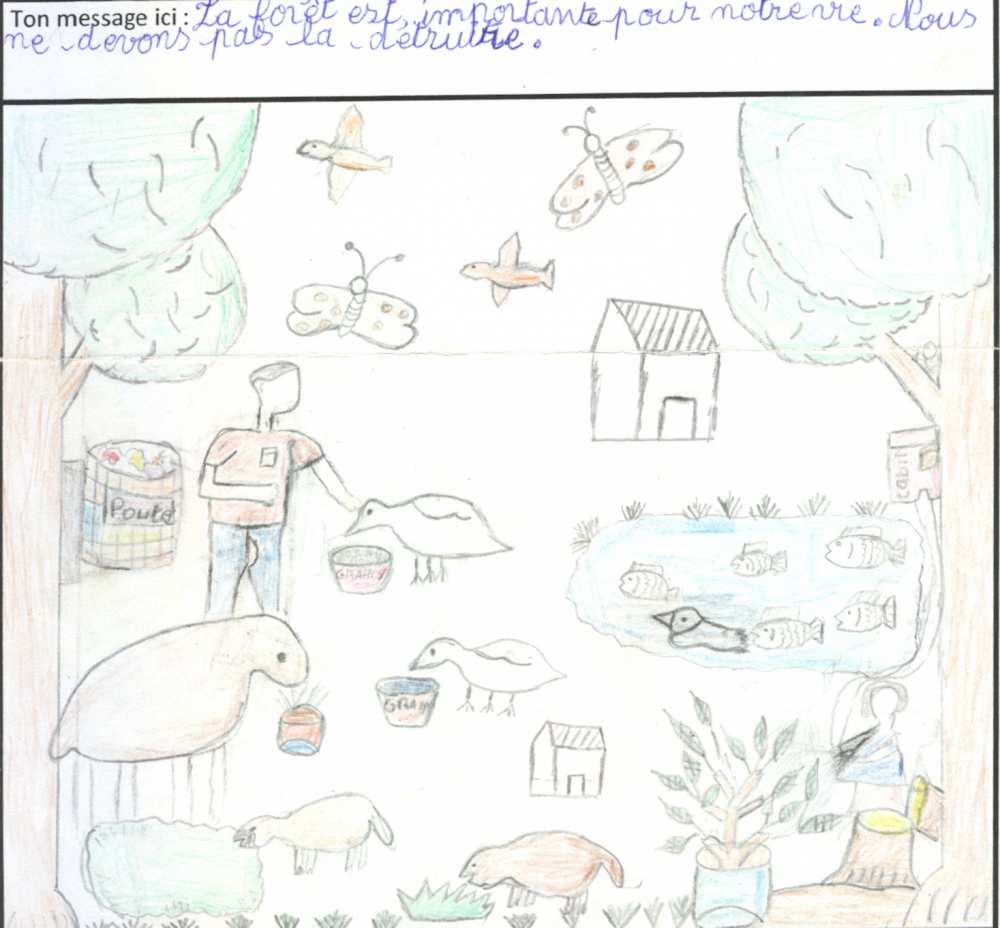 Ton message ici : La forêt est importante pour notre vie. Nous
ne devons pas la détruire.
GRAINS
GRAIN